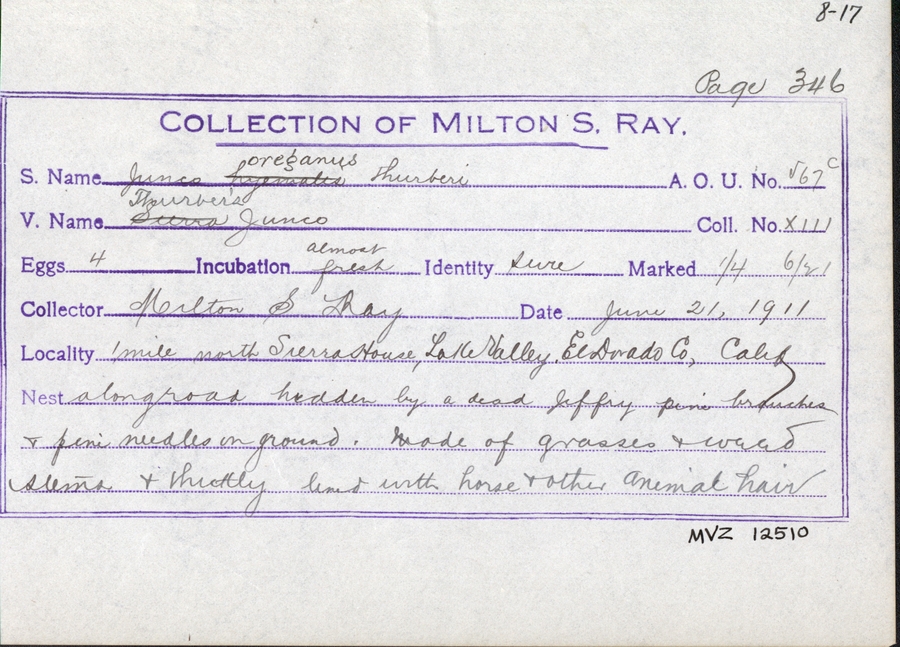 8-17
Page 346
COLLECTION OF MILTON S. RAY.
oreganus
S. Name Junco hyemalis thurberi A. O. U. No. 567c
Thurber's
V. Name Sierra Junco Coll. No. XIII
almost
Eggs 4 Incubation fresh Identity sure Marked 1/4 6/21
Collector Milton S Ray Date June 21, 1911
Locality 1 mile north Sierra House, Lake Valley, El Dorado Co, Calif
Nest along road hidden by a dead Jeffry pine branches
& pine needles on ground. Made of grasses & weed
stems & thickly lined with horse & other animal hair
MVZ 12510